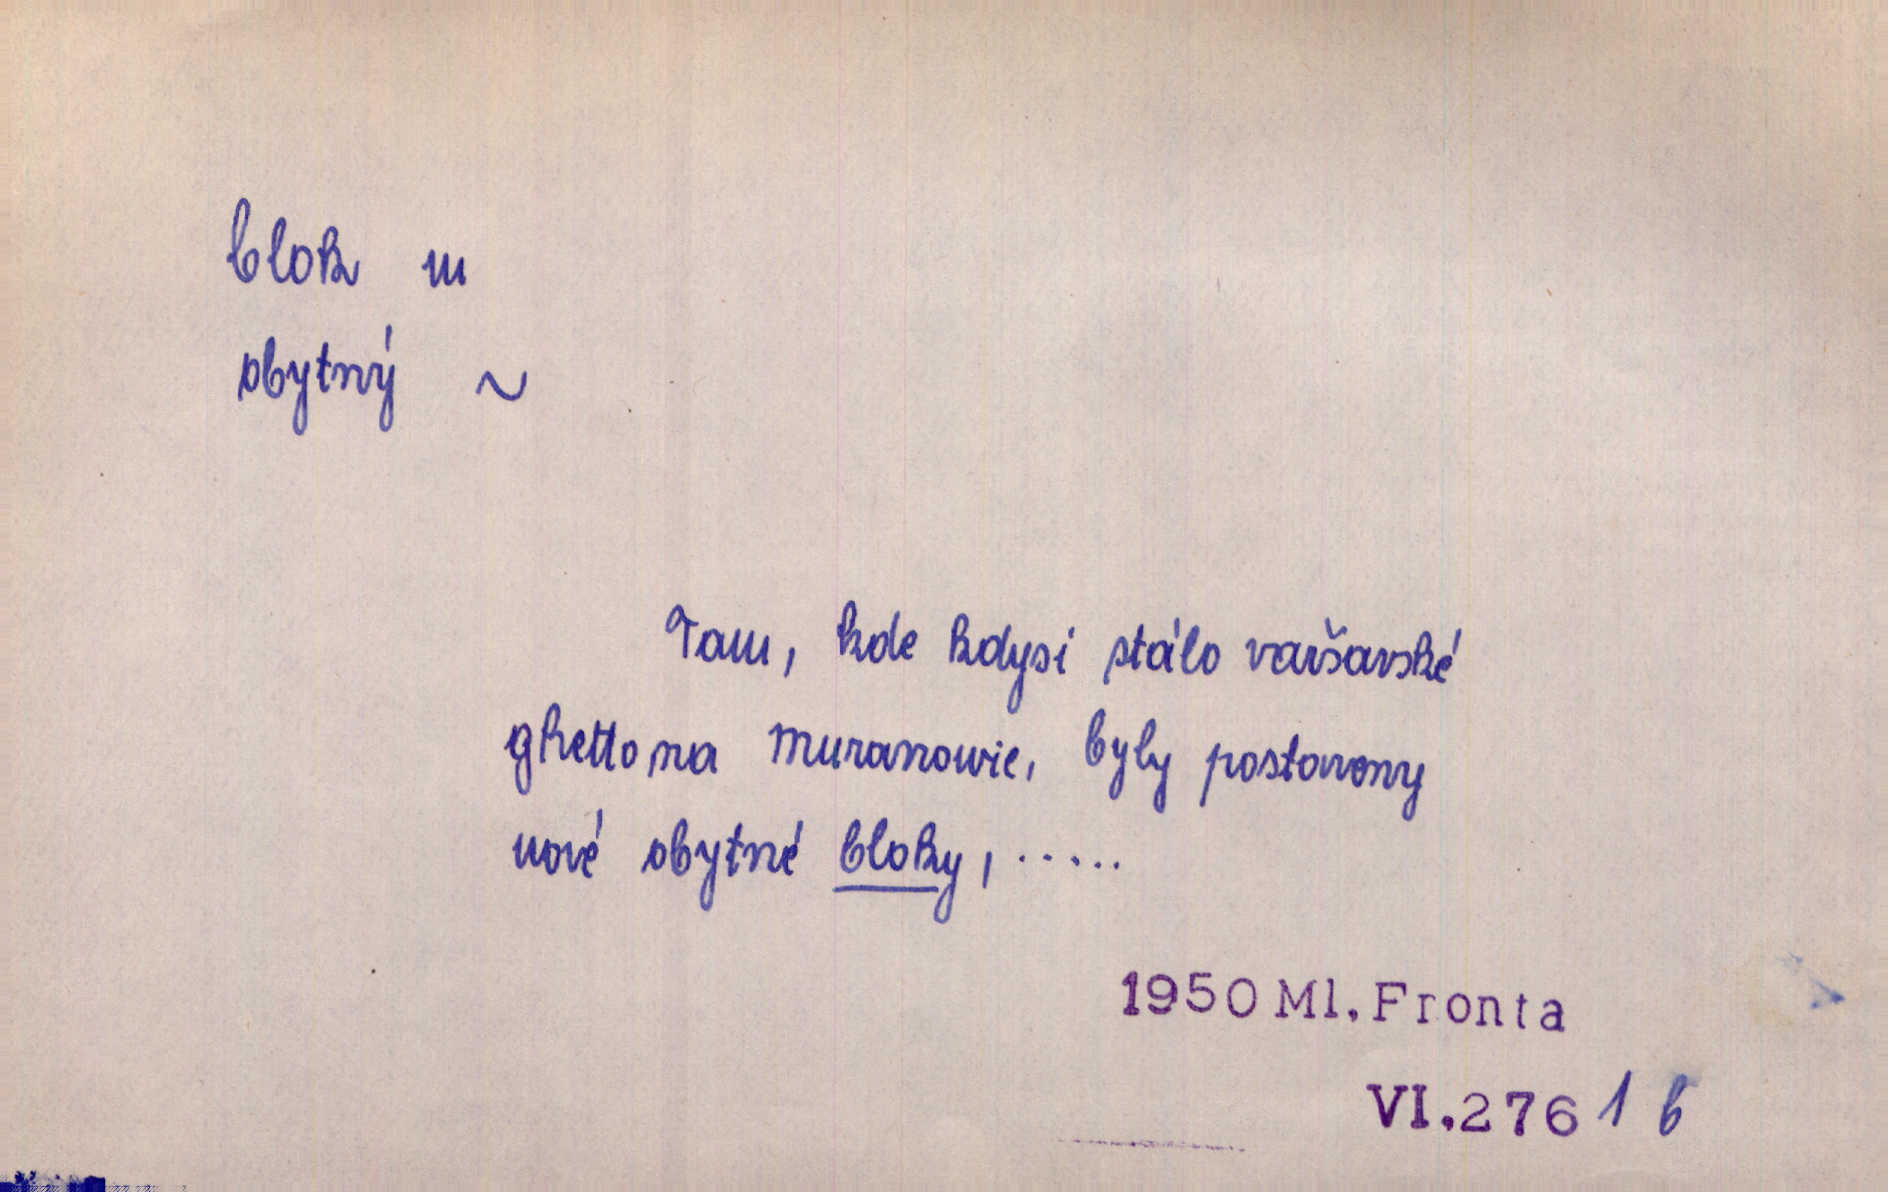 blok m
obytný ~
Tam, kde kdysi stálo varšavské
ghetto na Muranowie, byly postaveny
nové obytné bloky, .....
1950 Ml. Fronta
VI.276 1 b